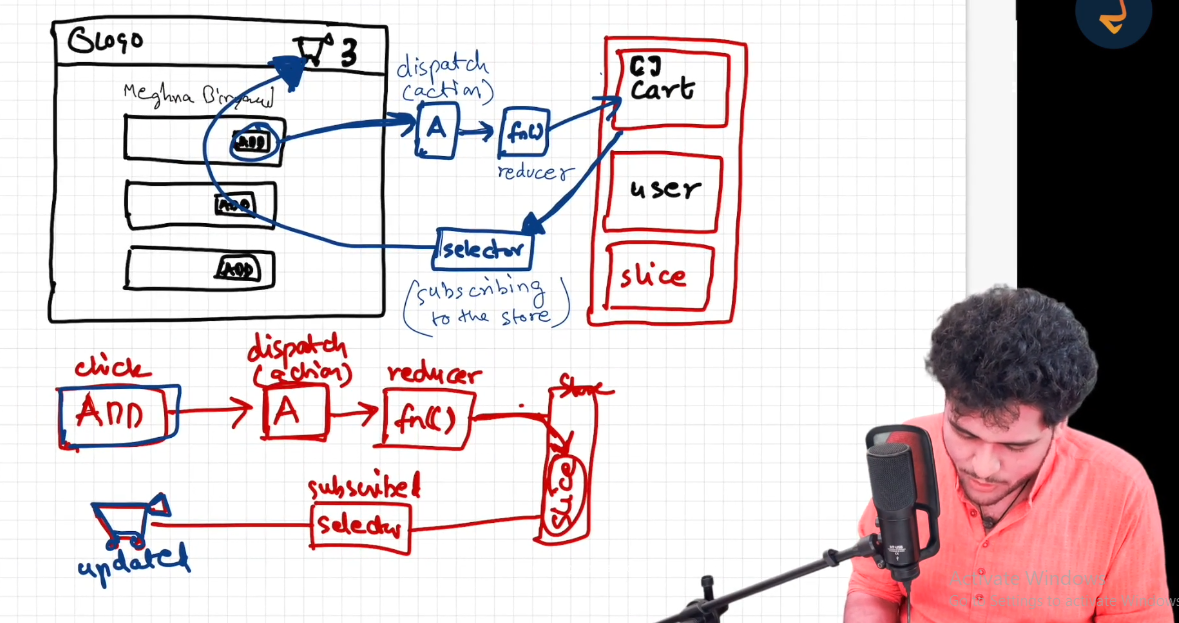 Logo
3
Meghna Biryani
ADD
ADD
ADD
dispatch
(action)
A
fn()
reducer
selector
(subscribing
to the store)
Cart
user
slice
click
ADD
dispatch
(action)
A
reducer
fn()
Store
slice
subscribed
selector
updated
Activate Windows